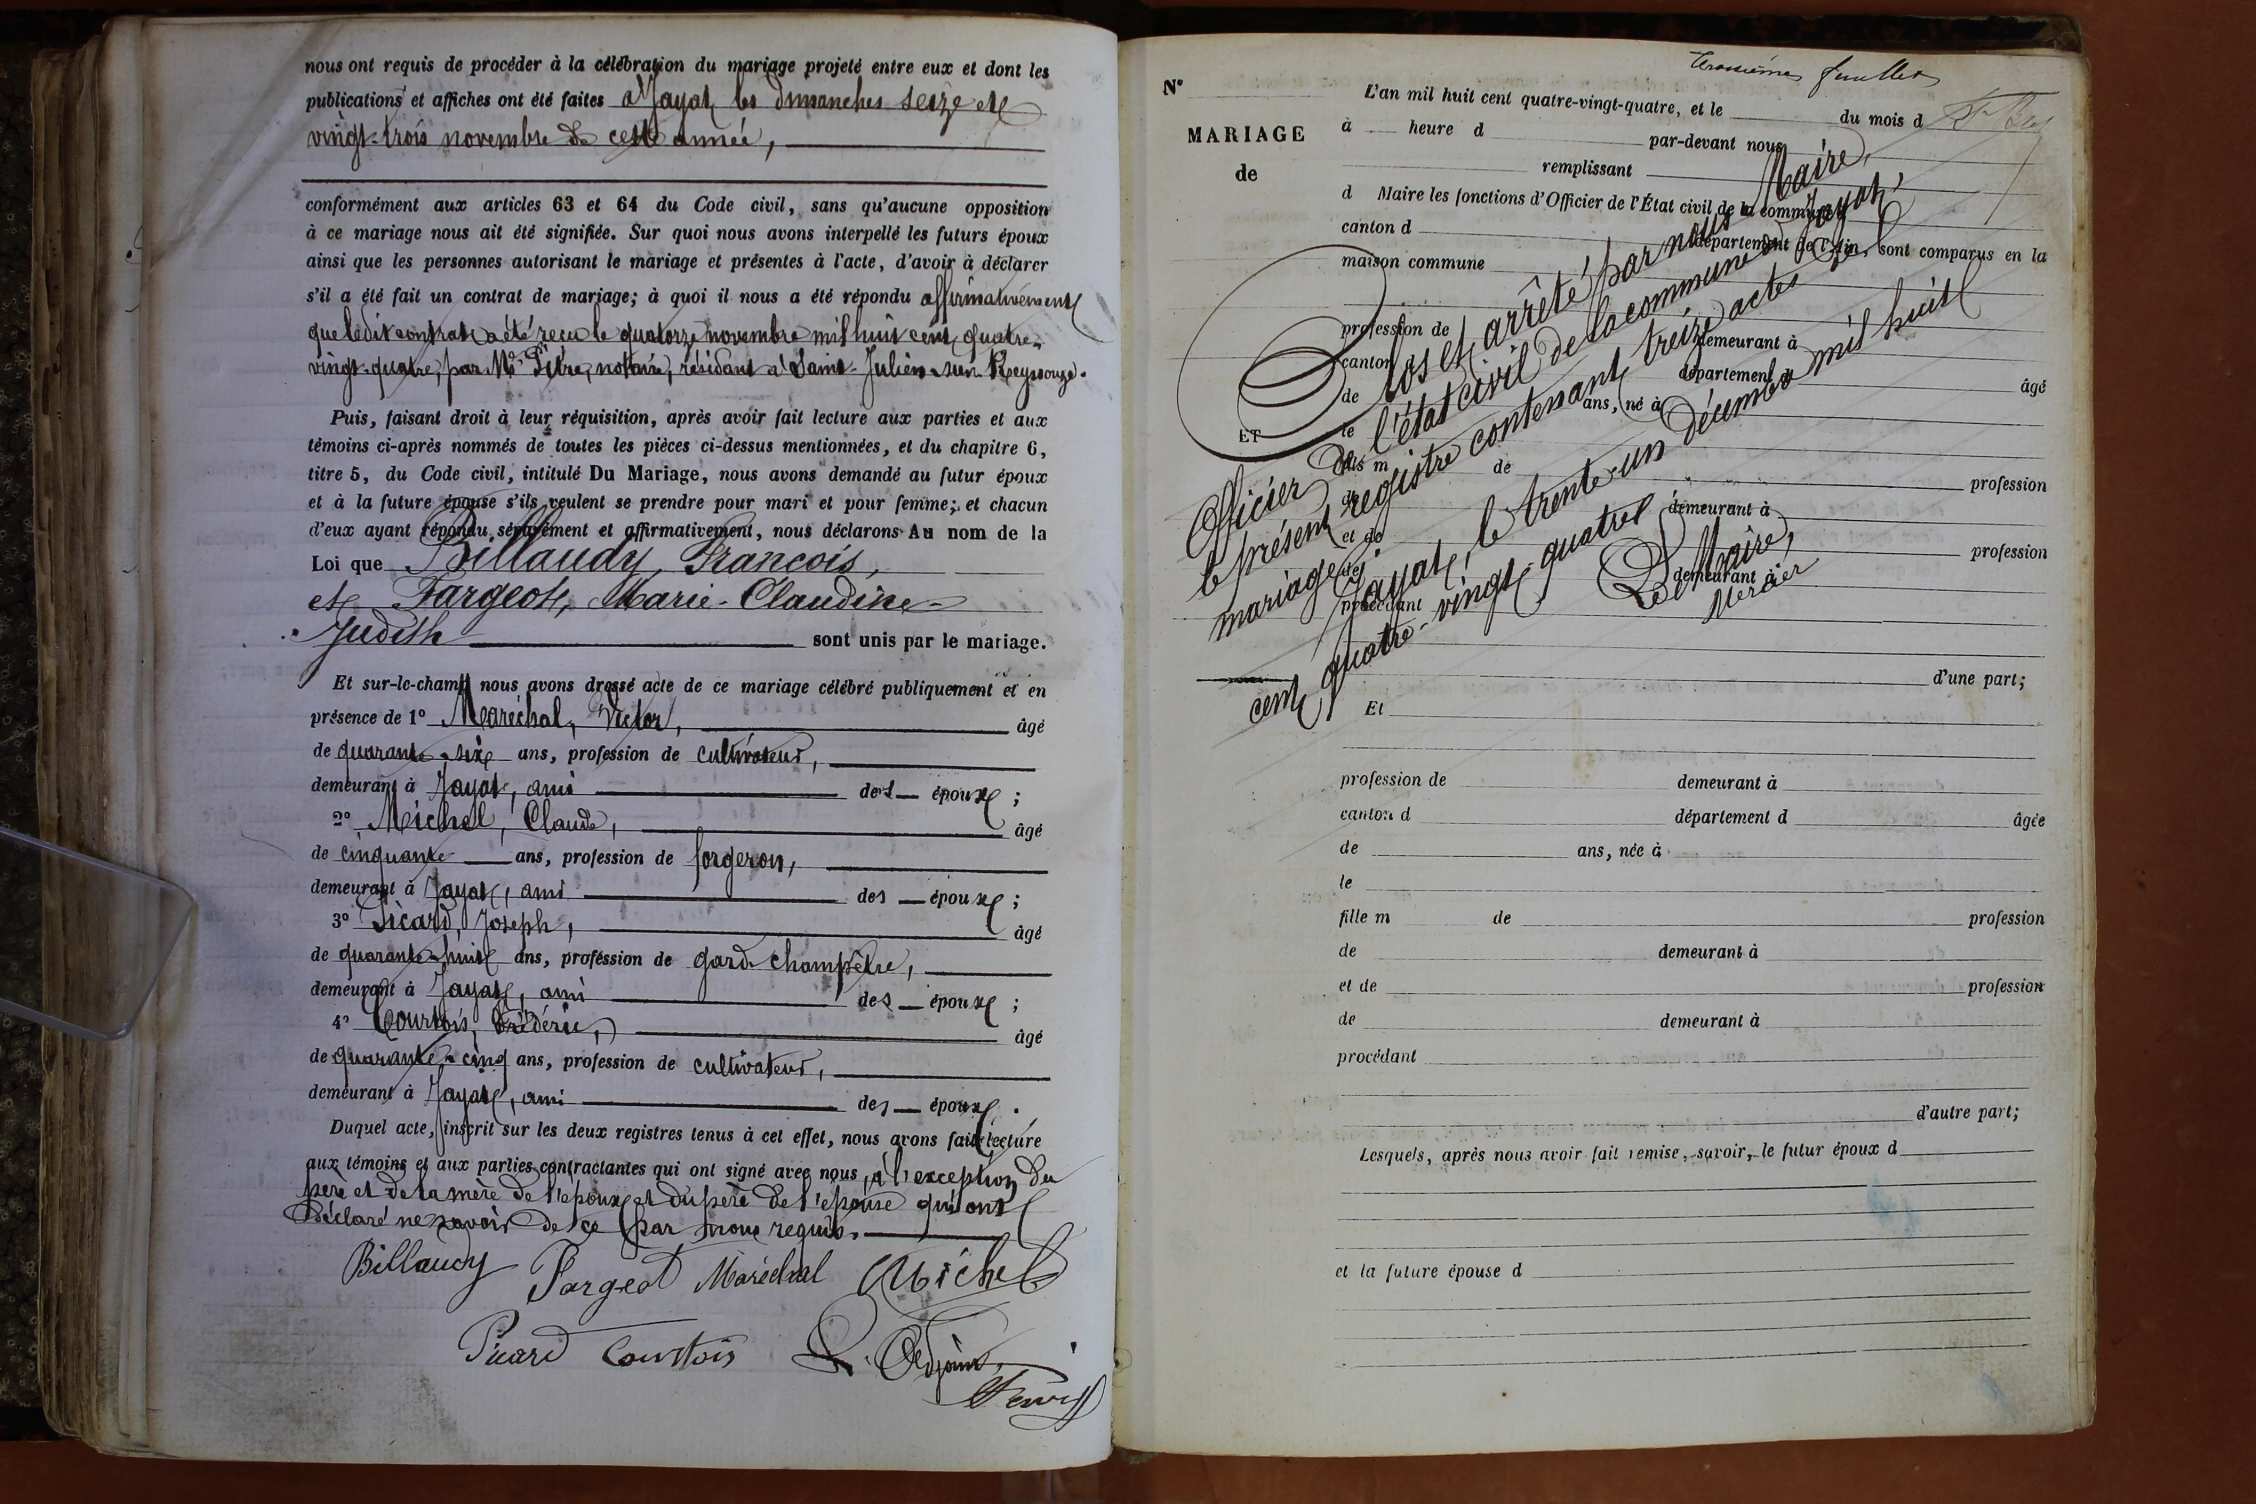 nous ont requis de procéder à la célébration du mariage projeté entre eux et dont les
publications et affiches ont été faites à Jayat les dimanches seize et
vingt-trois novembre de cette année,
conformément aux articles 63 et 64 du Code civil, sans qu'aucune opposition
à ce mariage nous ait été signifiée. Sur quoi nous avons interpellé les futurs époux
ainsi que les personnes autorisant le mariage et présentes à l'acte, d'avoir à déclarer
s'il a été fait un contrat de mariage; à quoi il nous a été répondu affirmativement
que ledit contrat a été reçu le quatorze novembre mil huit cent quatre-
vingt-quatre, par Me Pitre, notaire, résidant à Saint-Julien-sur-Reyssouze.
Puis, faisant droit à leur réquisition, après avoir fait lecture aux parties et aux
témoins ci-après nommés de toutes les pièces ci-dessus mentionnées, et du chapitre 6,
titre 5, du Code civil, intitulé Du Mariage, nous avons demandé au futur époux
et à la future épouse s'ils veulent se prendre pour mari et pour femme; et chacun
d'eux ayant répondu séparément et affirmativement, nous déclarons Au nom de la
Loi que Billaudy, François,
et Fargeot, Marie-Claudine-
Judith sont unis par le mariage.
Et sur-le-champ nous avons dressé acte de ce mariage célébré publiquement et en
présence de 1° Maréchal, Victor, âgé
de quarante-six ans, profession de cultivateur,
demeurant à Jayat, ami des époux ;
2° Michel, Claude, âgé
de cinquante ans, profession de forgeron,
demeurant à Jayat, ami des époux ;
3° Picard, Joseph, âgé
de quarante-huit ans, profession de garde champêtre,
demeurant à Jayat, ami des époux ;
4° Courtois, Frédéric, âgé
de quarante-cinq ans, profession de cultivateur,
demeurant à Jayat, ami des époux.
Duquel acte, inscrit sur les deux registres tenus à cet effet, nous avons fait lecture
aux témoins et aux parties contractantes qui ont signé avec nous, à l'exception du
père et de la mère de l'époux et du père de l'épouse qui ont
déclaré ne savoir de ce par nous requis.
Billaudy Fargeot Maréchal Michel
Picard Courtois L. Adjoint,
troisième feuillet
N°
MARIAGE
de
ET
L'an mil huit cent quatre-vingt-quatre, et le du mois d
à heure d par-devant nous
remplissant
d Maire les fonctions d'Officier de l'État civil de la commune d
canton d département de l'Ain, sont comparus en la
maison commune
profession de demeurant à
canton département d âgé
de ans, né à
le
fils m de profession
de demeurant à
et de profession
de demeurant à
procédant
d'une part;
Clos et arrêté par nous Maire,
Officier de l'état civil de la commune de Jayat,
le présent registre contenant treize actes de
mariage. Jayat, le trente-un décembre mil huit
cent quatre-vingt-quatre.
Le Maire,
Mercier
Et
profession de demeurant à
canton d département d âgée
de ans, née à
le
fille m de profession
de demeurant à
et de profession
de demeurant à
procédant
d'autre part;
Lesquels, après nous avoir fait remise, savoir, le futur époux d
et la future épouse d